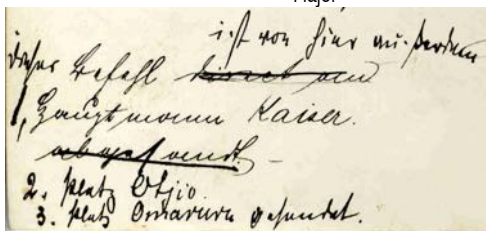 Major
ist von hier außerdem
dieser Befehl direct an
Hauptmann Kaiser.
abgesandt –
2. Platz Otjio.
3. Platz Omaruru gesendet.